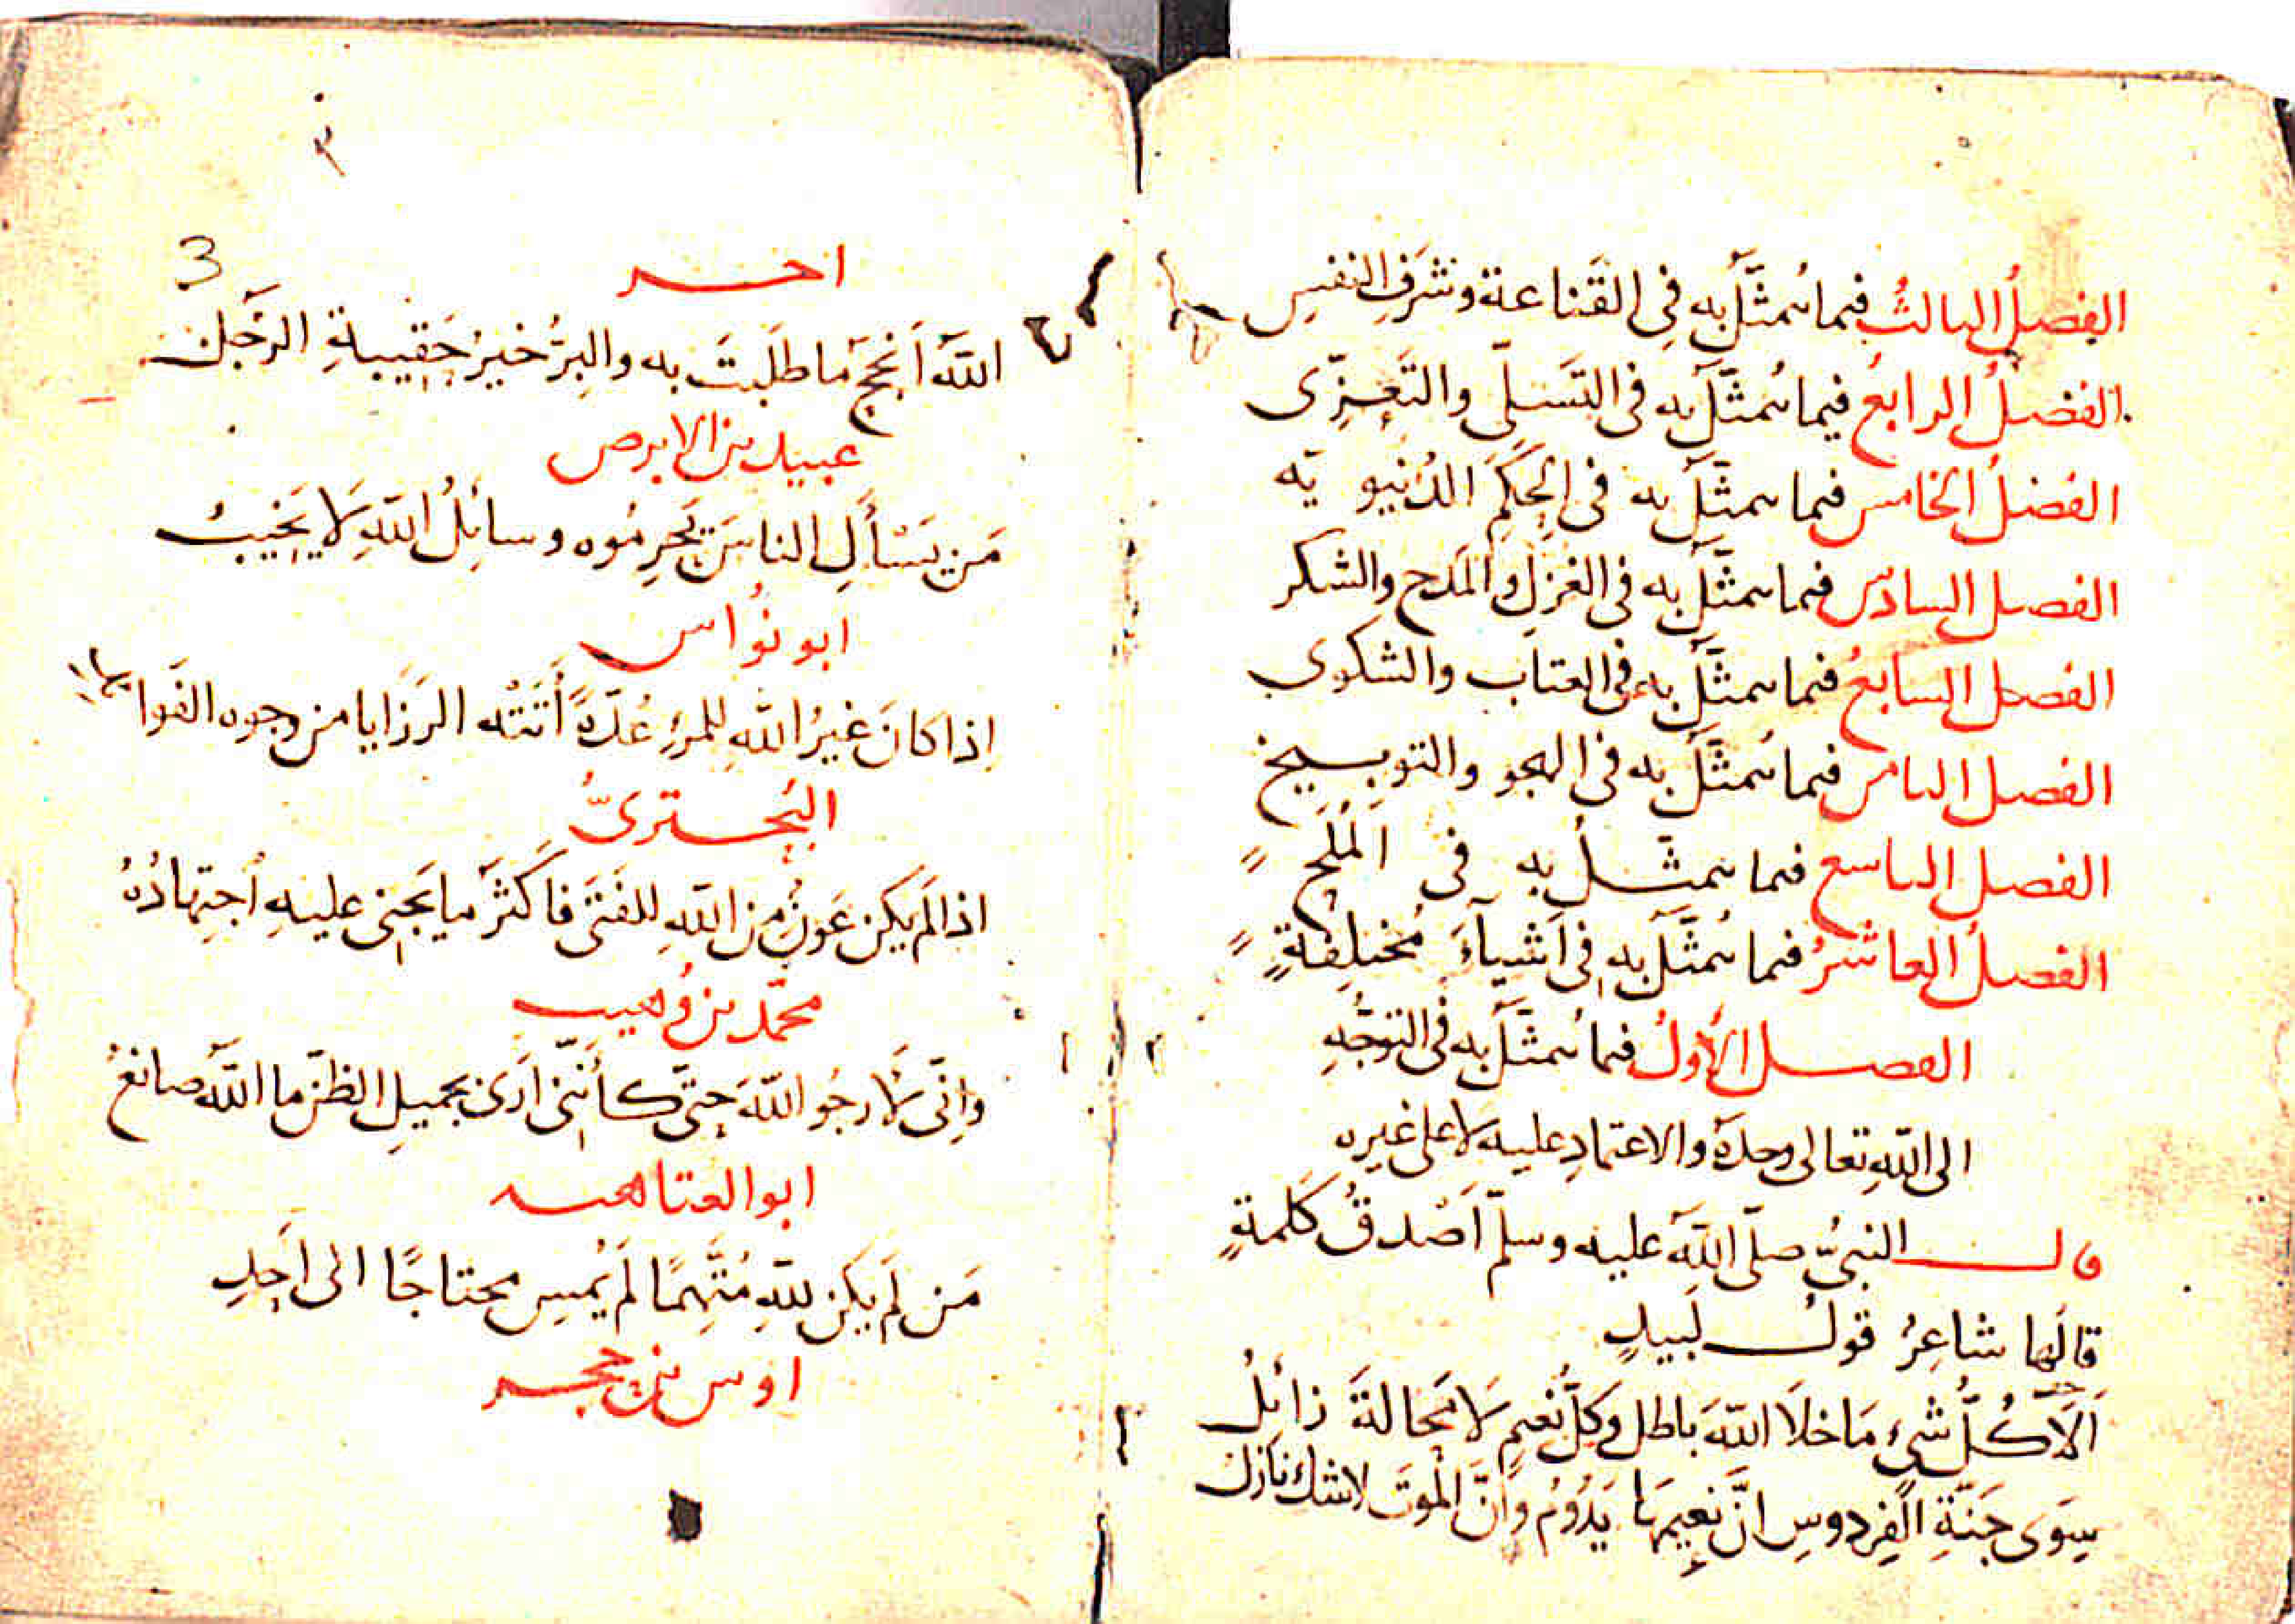 الفصلُ الثالثُ فيما يُتمثَّلُ به فِي القَناعة وشَرَفِ النفسِ
الفصلُ الرابعُ فيما يُتمثَّلُ به فى التَسَلِّى والتَّعزّى
الفصلُ الخامس فيما يتمثَّلُ به فى الحِكَمِ الدُنيويّه
الفصل السادسُ فيما يتمثَّلُ به فى الغزلِ والمَدح والشكر
الفصل السابعُ فيما يتمثَّلُ به فى العتاب والشكوى
الفصل الثامن فيما يُتمثَّلُ به فى الهجو والتوبيخ
الفصل التاسع فيما يتمثَّلُ به فى المُلَحِ
الفصلُ العاشرُ فيما يُتمثَّلُ به فى اَشياءَ مُختلِفةٍ
الفصل الأولُ فيما يُتمثَّلُ به فى التوجُّهِ
الى اللهِ تعالى وحدَهُ والاعتمادِ عليه لا على غيره
قال النبىُّ صلّى اللهُ عليه وسلّم اَصْدقُ كَلمةٍ
قالَها شاعِرُ قولُ لَبيدٍ
اَلَا كُلُّ شىءٍ مَا خلَا اللهَ باطل وكلُّ نَعيمٍ لَا مَحالةَ زائلُ
سِوَى جَنّةِ الفِردوسِ انَّ نعِيمَها يَدُوُمُ واَنَّ المْوتَ لا شك نازل
٣
3
اخر
اللهُ اَنجحُ ما طلَبتَ به والبِرُّ خيرُ حَقيبةِ الرَّجُلِ
عبيد بن الابرص
مَن يَسْأَلِ الناسَ يَحرِمُوه وسائِلُ اللهِ لَا يَخيبُ
ابو نُواس
اذا كانَ غيرُ اللهِ للمرءِ عُدّةً أَتَتْه الرَزَايا من وجوه الفَوائد
البُحترىُّ
اذا لَم يكن عَونٌ من اللهِ للفَتَى فاَكثَرُ ما يَجنى عليهِ اجتِهادُهُ
محمّد بن وُهيب
وانّى لاَرجُو اللهَ حتّى كأننى اَرَى بجميلِ الظنّ ما اللهُ صانعُ
ابو العتاهيه
مَن لَم يكن للهِ مُتَّهِمًا لَم يُمسِ محتاجًا الى اَحدِ
اوس بن حجر